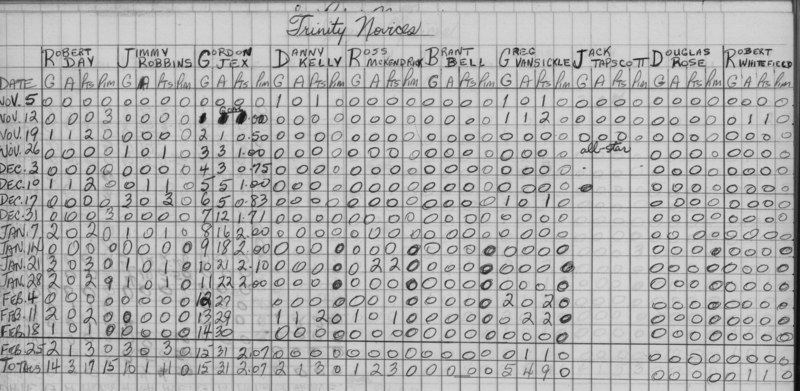 Trinity Novices
ROBERT DAY JIMMY ROBBINS GORDON JEX DANNY KELLY ROSS MCKENDRICK BRANT BELL GREG VANSICKLE JACK TAPSCOTT DOUGLAS ROSE ROBERT WHITEFIELD
DATE G A Pts Pim G A Pts Pim G A Pts Pim G A Pts Pim G A Pts Pim G A Pts Pim G A Pts Pim G A Pts Pim G A Pts Pim G A Pts Pim
NOV. 5 0 0 0 0 0 0 0 0 0 0 0 0 1 0 1 0 0 0 0 0 0 0 0 0 1 0 1 0 0 0 0 0 0 0 0 0 0 0 0 0
NOV. 12 0 0 0 3 0 0 0 0 0.00 0 0 0 0 0 0 0 0 0 0 0 0 1 1 2 0 0 0 0 0 0 0 0 0 0 1 1 0
NOV. 19 1 1 2 0 0 0 0 0 2 1 0.50 0 0 0 0 0 0 0 0 0 0 0 0 0 0 0 0 0 0 0 0 0 0 0 0 0 0 0
NOV. 26 0 0 0 0 1 0 1 0 3 3 1.00 0 0 0 0 0 0 0 0 0 0 0 0 all-star 0 0 0 0 0 0 0 0
DEC. 3 0 0 0 0 0 0 0 0 4 3 0.75 0 0 0 0 0 0 0 0 0 0 0 0 0 0 0 0 0 0 0 0
DEC. 10 1 1 2 0 0 1 1 0 5 5 1.00 0 0 0 0 0 0 0 0 0 0 0 0 0 0 0 0 0 0 0 0
DEC. 17 0 0 0 0 3 0 3 0 6 5 0.83 0 0 0 0 0 0 0 0 0 0 0 0 1 0 1 0 0 0 0 0 0 0 0 0
DEC. 31 0 0 0 3 0 0 0 0 7 12 1.71 0 0 0 0 0 0 0 0 0 0 0 0 0 0 0 0
JAN. 7 2 0 2 0 1 0 1 0 8 16 2.00 0 0 0 0 0 0 0 0 0 0 0 0 0 0 0 0
JAN. 14 0 0 0 0 0 0 0 0 9 18 2.00 0 0 0 0 0 0 0 0 0 0 0 0 0 0 0 0
JAN. 21 3 0 3 0 1 0 1 0 10 21 2.10 0 0 0 0 0 2 2 0 0 0 0 0 0 0 0 0
JAN. 28 2 0 2 9 1 0 1 0 11 22 2.00 0 0 0 0 0 0 0 0 0 0 0 0 0 0 0 0
FEB. 4 0 0 0 0 0 0 0 0 12 27 0 0 0 0 0 0 0 0 0 0 0 0 2 0 2 0
FEB. 11 2 0 2 0 0 0 0 0 13 29 1 1 2 0 1 0 1 0 0 0 0 0 0 2 2 0
FEB. 18 1 0 1 0 0 0 0 0 14 30 0 0 0 0 0 0 0 0 0 0 0 0 0 0 0 0
FEB. 25 2 1 3 0 3 0 3 0 15 31 2.07 0 0 0 0 0 0 0 0 0 0 0 0 0 1 1 0
TOTALS 14 3 17 15 10 1 15 31 2.07 2 1 3 0 1 2 3 0 0 0 0 0 5 4 9 0 0 0 0 0 0 1 1 0